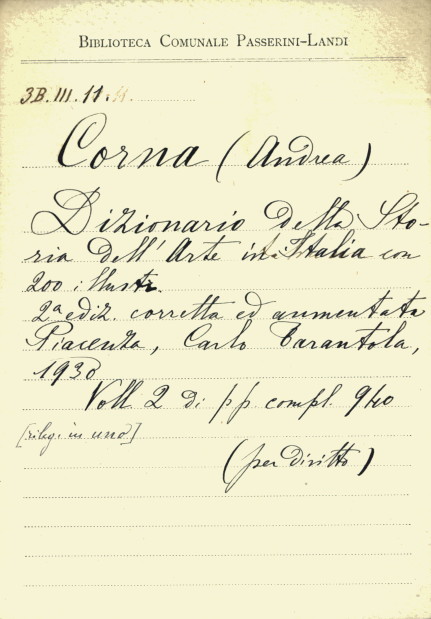 BIBLIOTECA COMUNALE PASSERINI-LANDI
3B.III.11.
Corna (Andrea)
Dizionario della Sto-
ria dell'Arte in Italia con
200 illustr.
2a ediz. corretta ed aumentata
Piacenza, Carlo Tarantola,
1930
Voll. 2 di pp. compl. 940
[rileg. in uno]
(per diritto)